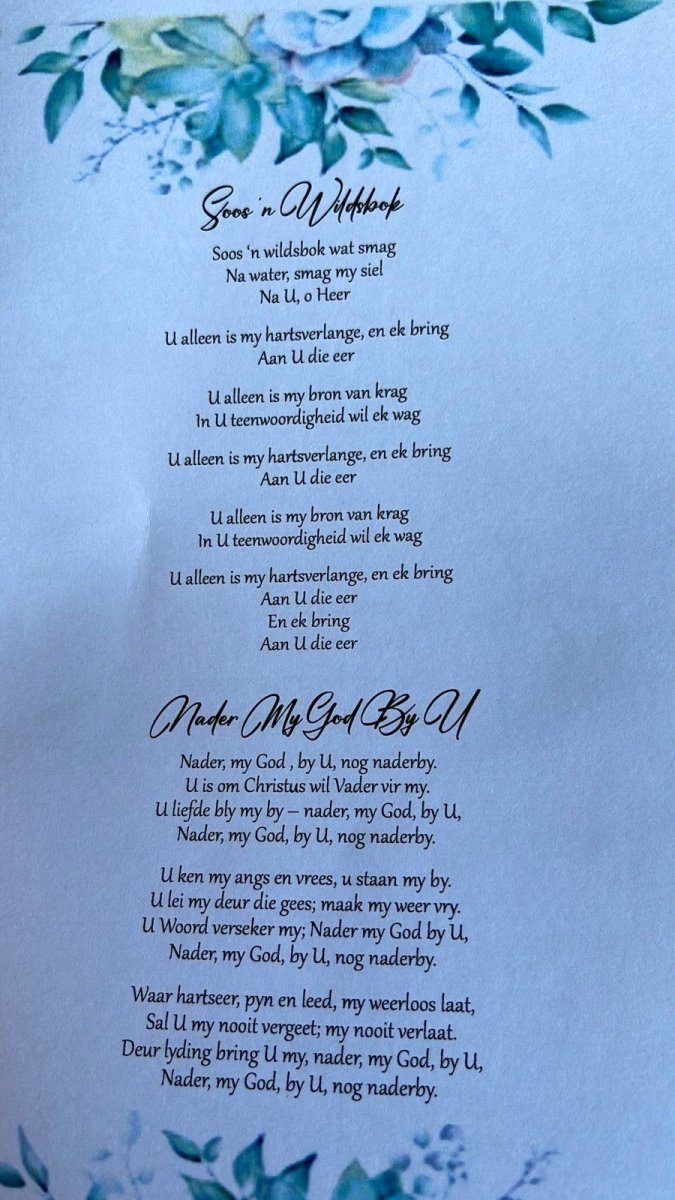 Soos 'n Wildsbok
Soos ‘n wildsbok wat smag
Na water, smag my siel
Na U, o Heer
U alleen is my hartsverlange, en ek bring
Aan U die eer
U alleen is my bron van krag
In U teenwoordigheid wil ek wag
U alleen is my hartsverlange, en ek bring
Aan U die eer
U alleen is my bron van krag
In U teenwoordigheid wil ek wag
U alleen is my hartsverlange, en ek bring
Aan U die eer
En ek bring
Aan U die eer
Nader My God By U
Nader, my God , by U, nog naderby.
U is om Christus wil Vader vir my.
U liefde bly my by – nader, my God, by U,
Nader, my God, by U, nog naderby.
U ken my angs en vrees, u staan my by.
U lei my deur die gees; maak my weer vry.
U Woord verseker my; Nader my God by U,
Nader, my God, by U, nog naderby.
Waar hartseer, pyn en leed, my weerloos laat,
Sal U my nooit vergeet; my nooit verlaat.
Deur lyding bring U my, nader, my God, by U,
Nader, my God, by U, nog naderby.